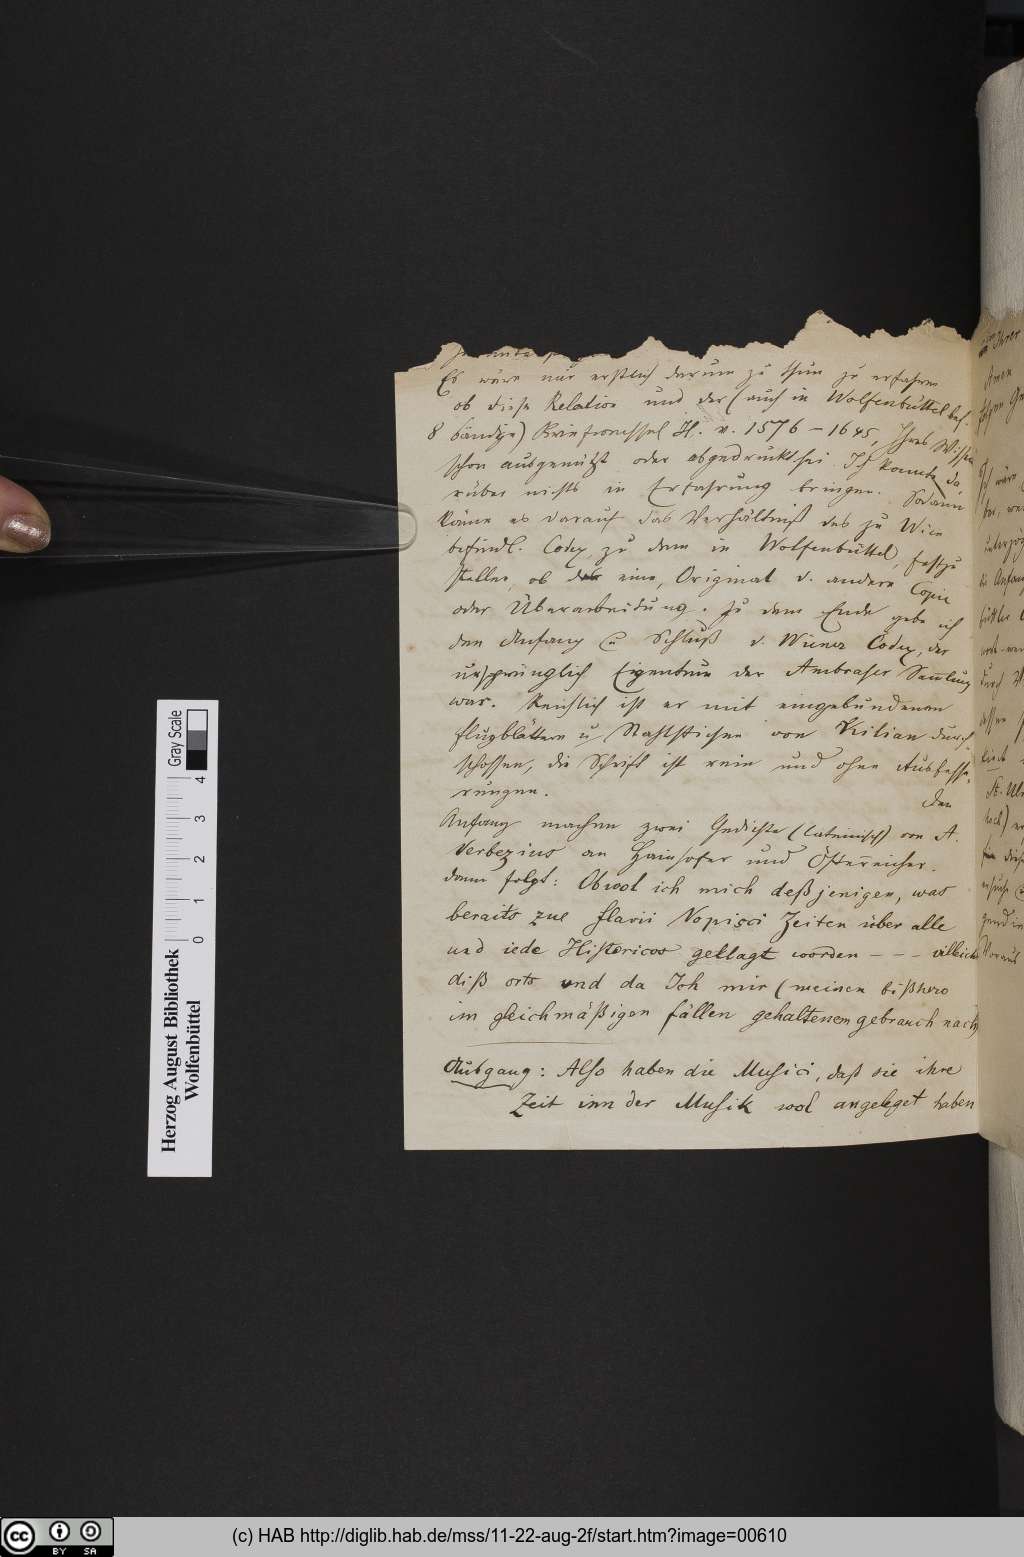 Es wäre nur erstlich darum zu thun zu erfahren
ob diese Relation und der (auch in Wolfenbüttel bef.
8 bändige) Briefwechsel H. v. 1576 – 1645, Ihres Wissens
schon ausgenützt oder abgedruckt sei. Ich konnte da
rüber nichts in Erfahrung bringen. Sodann
käme es darauf das Verhältniß des zu Wien
befindl. Codex zu dem in Wolfenbüttel, festzu
stellen, ob das eine, Original d. andere Copie
oder Überarbeidung. Zu dem Ende gebe ich
den Anfang u Schluß d. Wiener Codex, der
ursprünglich Eigentum der Ambraser Sammlung
war. Reichlich ist er mit eingebundenen
Flugblättern u. Stahlstichen von Kilian durch
schossen, die Schrift ist rein und ohne Ausbesse-
rungen.
Den
Anfang machen zwei Gedichte (lateinisch) von A.
Verbezius an Hainhofer und Österreicher.
dann folgt: Obwol ich mich deßjenigen, was
beraits zue Flavii Vopisci Zeiten über alle
und iede Historicos geklagt worden – – – villeicht
diß orts und da Ich mir (meinen bißhero
im gleichmäßigen fällen gehaltenem gebrauch nach)
Ausgang: Also haben die Musici, daß sie ihre
Zeit inn der Musik wol angeleget haben
Ihrer
Herzog August Bibliothek
Wolfenbüttel
Gray Scale
0 1 2 3 4
cc BY SA
(c) HAB http://diglib.hab.de/mss/11-22-aug-2f/start.htm?image=00610